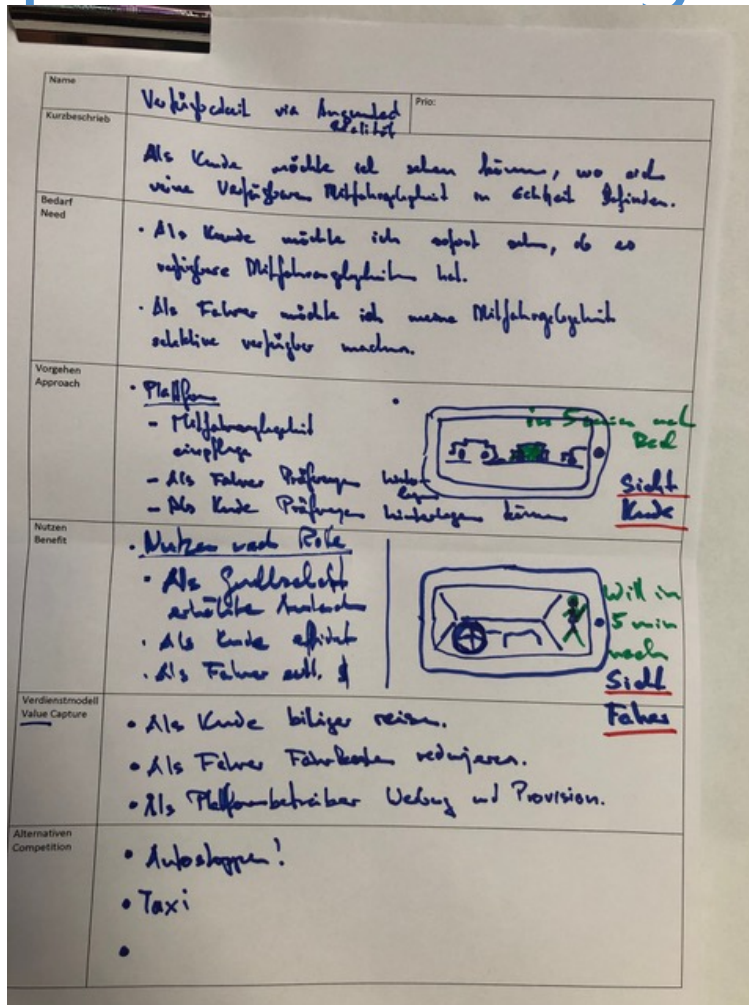 Name
Verfügbarkeit via Augmented
Realität
Prio:
Kurzbeschrieb
Als Kunde möchte ich sehen können, wo sich
meine Verfügbaren Mitfahrgelegenheit in Echtzeit befinden.
Bedarf
Need
• Als Kunde möchte ich sofort sehen, ob es
verfügbare Mitfahrgelegenheiten hat.
• Als Fahrer möchte ich meine Mitfahrgelegenheit
selektive verfügbar machen.
Vorgehen
Approach
• Plattform
- Mitfahrgelegenheit
einpflege
- Als Fahrer Präferenzen hinterlegen
- Als Kunde Präferenzen hinterlegen können
in 5 min nach
Sicht
Kunde
Nutzen
Benefit
• Nutzen nach Rolle
• Als Gesellschaft
erhöhte
• Als Kunde effizient
• Als Fahrer $
Will in
5 min
nach
Sicht
Fahrer
Verdienstmodell
Value Capture
• Als Kunde billiger reisen.
• Als Fahrer Fahrkosten reduzieren.
• Als Plattformbetreiber Werbung und Provision.
Alternativen
Competition
• Autostoppen!
• Taxi
•